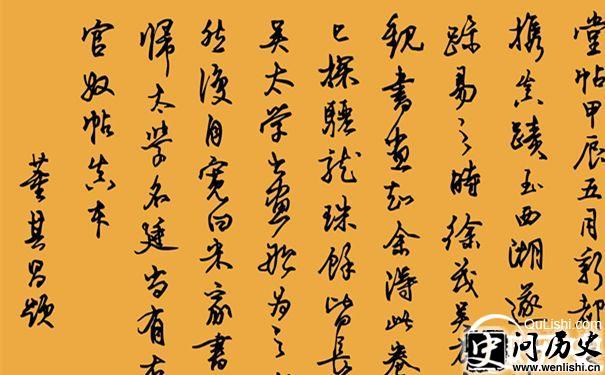 堂帖甲辰五月新都
攜真蹟至西湖遂
跡易之時徐茂吳
觀書畫知余得此卷
已探驪龍珠餘皆長
吳太學書畫船為之
然復自寬曰米家書
歸太學名廷尚有右
官奴帖真本
董其昌題
QuLishi.com
问历史
www.wenlishi.cn